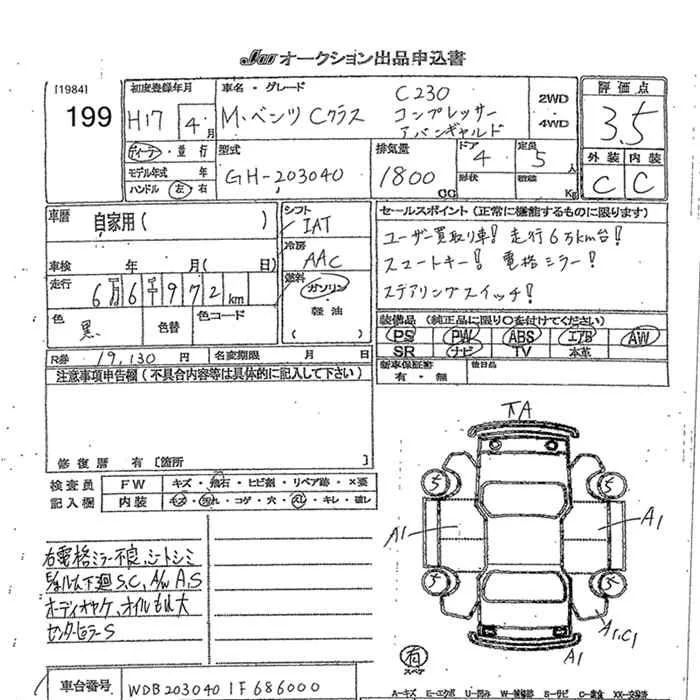 JU オークション出品申込書
[1984]
199
初度登録年月
H17 4月
車名・グレード
M・ベンツ Cクラス
C230
コンプレッサー
アバンギャルド
2WD
・
4WD
評価点
3.5
外装 内装
C C
ディーラー・並行
モデル年式 年
ハンドル 左 右
型式
GH-203040
排気量
1800 CC
ドア
4
形状
定員
5人
積載 Kg
車歴
自家用( )
シフト
IAT
冷房
AAC
燃料
ガソリン
・
軽油
( )
車検 年 月( 日)
走行
6万6千972km
色
黒
色替
色コード
R券 19,130円
名変期限 月 日
セールスポイント (正常に機能するものに限ります)
ユーザー買取り車! 走行6万km台!
スマートキー! 電格ミラー!
ステアリングスイッチ!
装備品 (純正品に限り○を付けてください)
PS PW ABS エアB AW
SR ナビ TV 本革
新車保証書 後日品
有・無
注意事項申告欄 (不具合内容等は具体的に記入して下さい)
修復歴 有 [箇所 ]
検査員
記入欄
FW キズ・飛石・ヒビ割・リペア跡・×要
内装 キズ・汚れ・コゲ・穴・スレ・キレ・破レ
右電格ミラー不良、シートシミ
下廻S.C、A/W A.S
オーディオヤケ、オイルもれ大
センターピラーS
A
5 5
A1 A1
5 5
A1,C1
A1
有
スペア
車台番号 WDB2030401F686000
A=キズ E=エクボ U=凹み W=補修跡 S=サビ C=腐食 XX=交換済